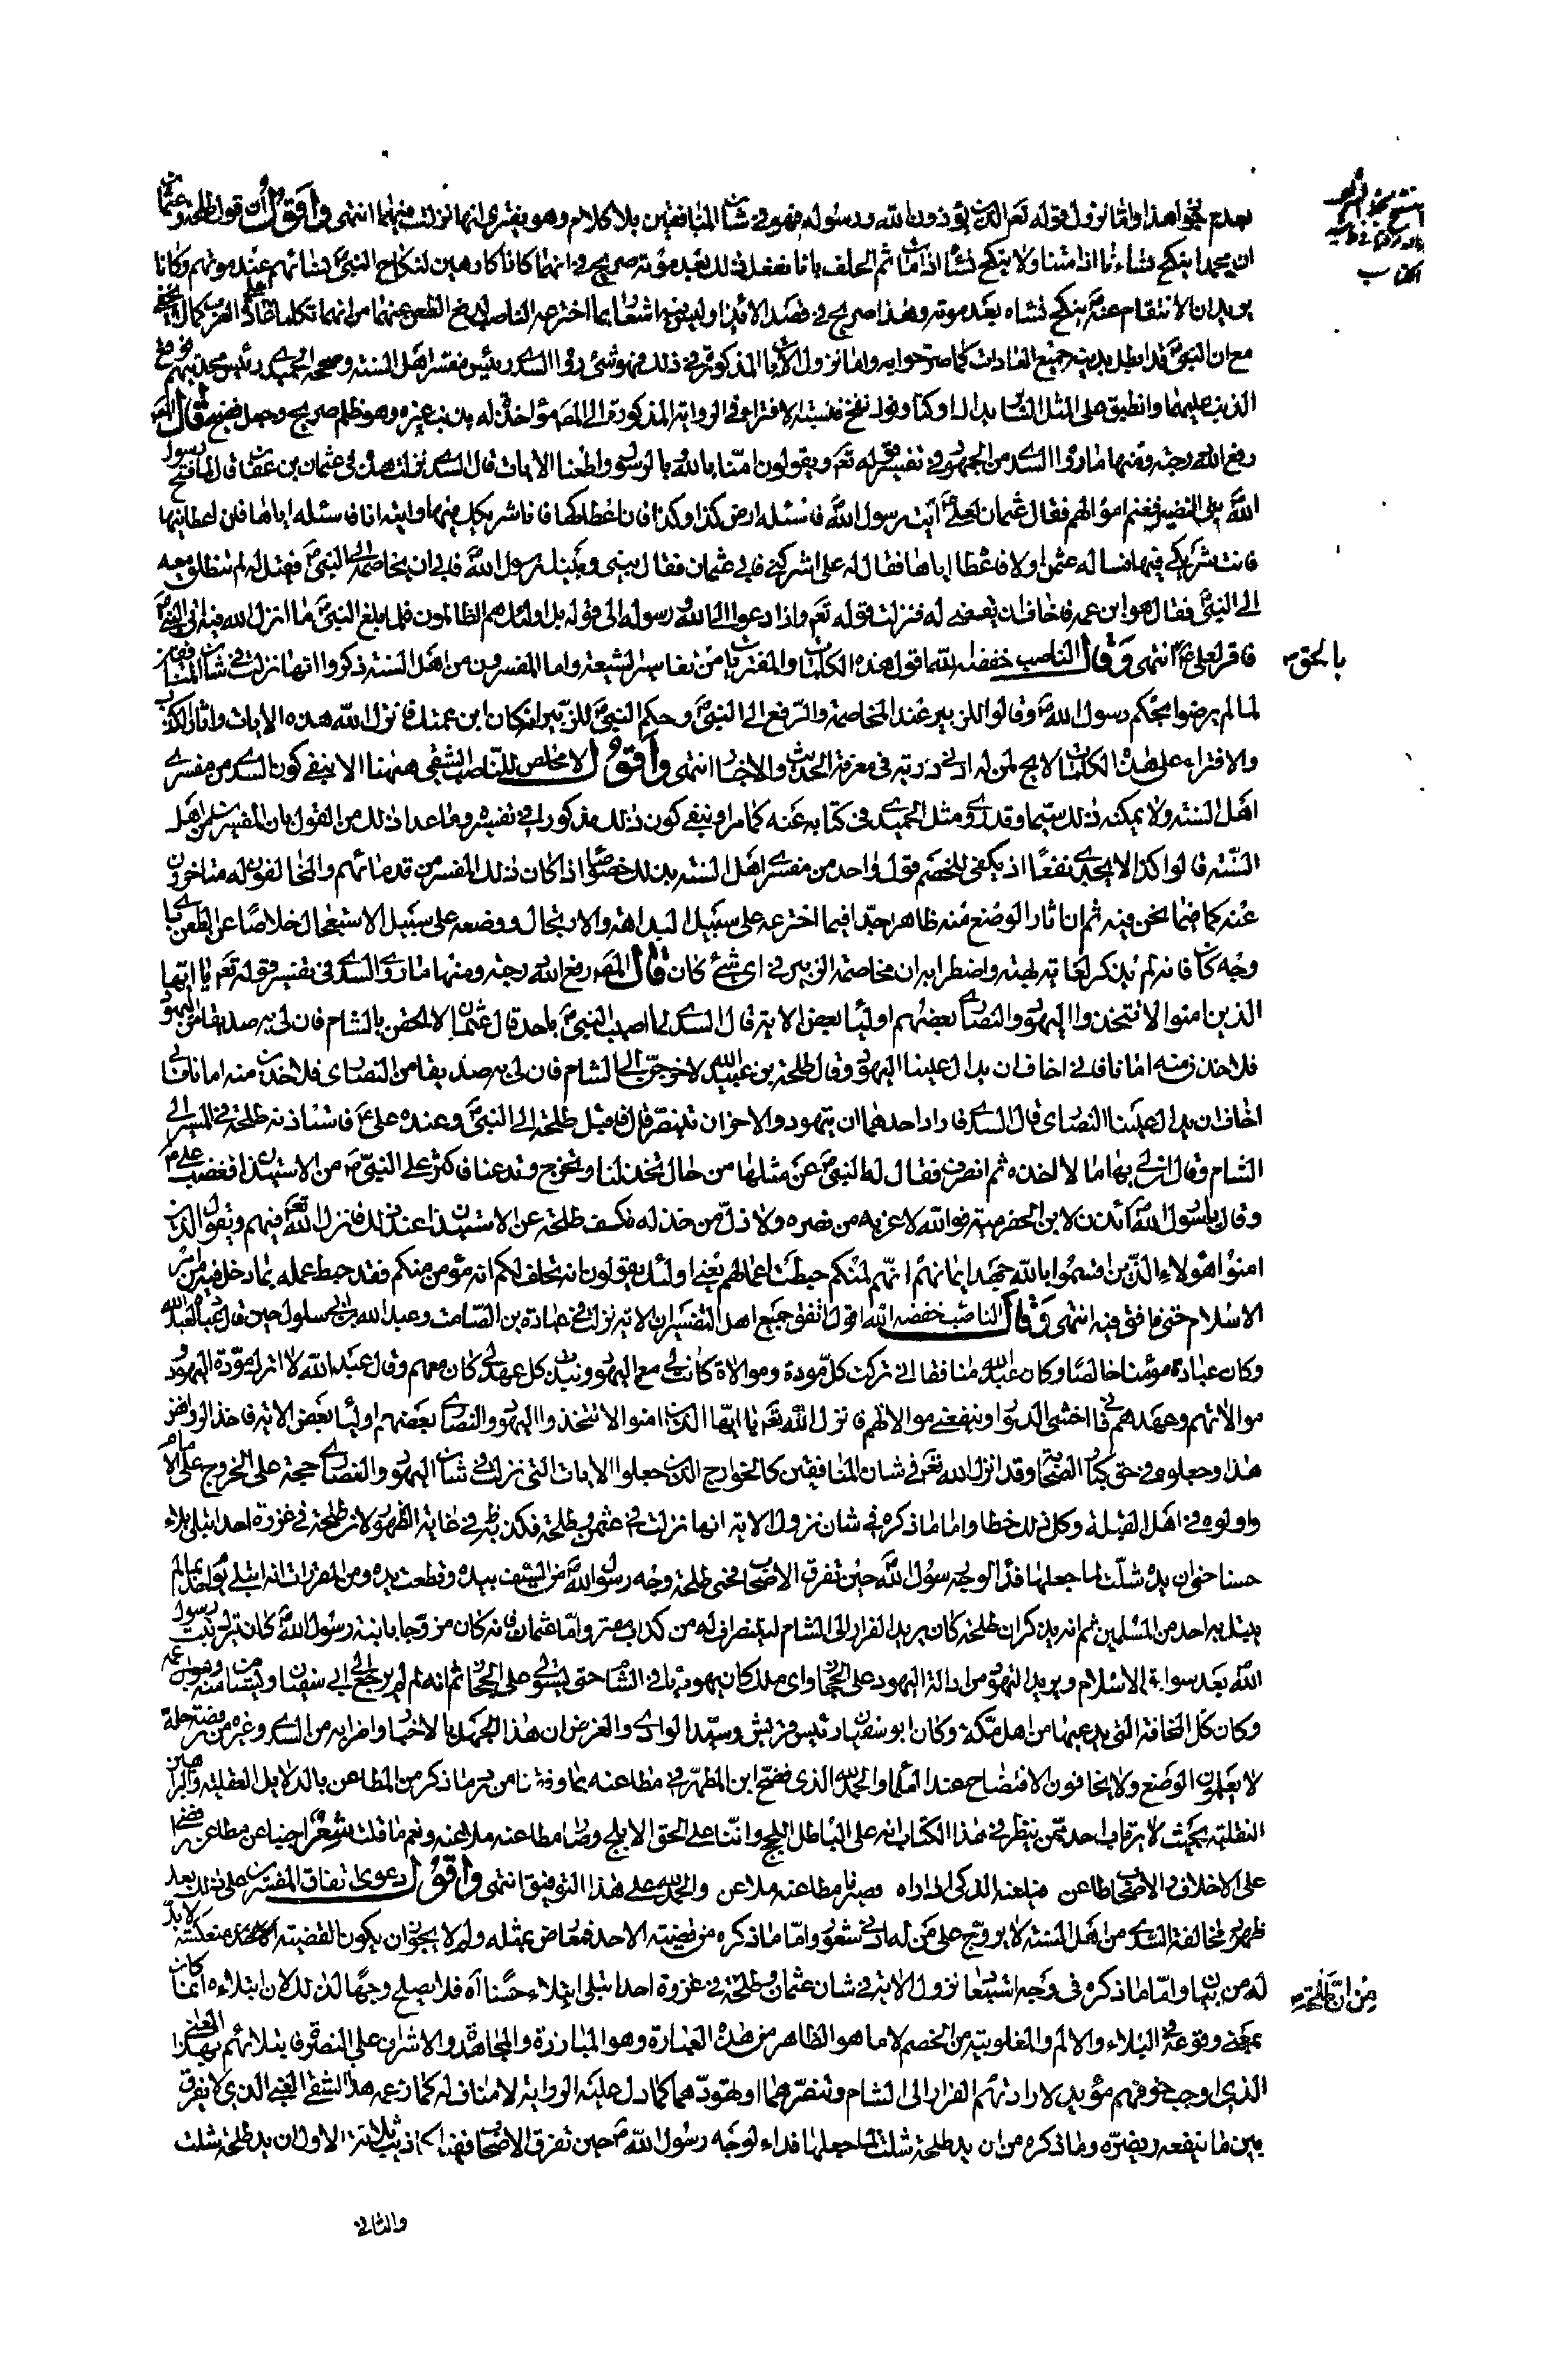 بعدم نحو هذا واما نزول قوله تعم الذين يؤذون الله ورسوله فهو في شان المنافقين بلا كلام وهو يفترى انها نزلت فيهما انتهى واقول ان قول طلحة وعثمان
ان محمدا ينكح نساءنا اذا متنا ولا ننكح نساءه اذا مات ثم الحلف بانا نفعل ذلك بعد موته صريح في انهما كانا كارهين لنكاح النبي نسائهم عند موتهم وكانا
يريدان الانتقام عنه بنكح نسائه بعد موته وهذا صريح في قصد الايذاء وليس فيه اشعار بما اخترعه الناصب لدفع الطعن عنهما من انهما تكلما
مع ان النبي قد ابطل بدينه جميع العادات كما صرحوا به واما نزول الايات المذكورة في ذلك فهو شئ رواه السدي رئيس مفسري اهل السنة وصححه الحميدي رئيس محدثيهم
الذنب عليهما وانطبق على المثل يداك اوكتا وفوك نفخ فنسبة الافتراء في الرواية المذكورة الى المصم مؤاخذة له بذنب غيره وهو ظلم صريح وجهل فضيح قال المصم
رفع الله درجته ومنها ما رواه السدي من الجمهور في تفسير قوله تعم ويقولون امنا بالله وبالرسول واطعنا الايات قال السدي نزلت هذه في عثمان بن عفان قال لما فتح رسول
الله بني النضير فغنم اموالهم فقال عثمان لعلي ايت رسول الله فاسئله ارض كذا وكذا فان اعطاكها فانا شريكك فيها وايته انا فاسئله اياها فان اعطانيها
فانت شريكي فيها فساله عثمان اولا فاعطاه اياها فقال له علي اشركني فابى عثمان فقال بيني وبينك رسول الله فابى ان يخاصمه الى النبي فقيل له لم لا تنطلق معه
الى النبي فقال هو ابن عمه فاخاف ان يقضى له فنزلت قوله تعم واذا دعوا الى الله ورسوله الى قوله بل اولئك هم الظالمون فلما بلغ النبي ما انزل الله فيه
فاقر لعلي بالحق انتهى وقال الناصب خفضه الله اقول هذه الكلمات والمفتريات من تفاسير الشيعة واما المفسرون من اهل السنة ذكروا انها نزلت في شان المنافقين
لما لم يرضوا بحكم رسول الله وقالوا للزبير عند المخاصمة والترفع الى النبي وحكم النبي للزبير انه كان ابن عمتك فانزل الله هذه الايات واثار الكذب
والافتراء على هذه الكلمات لائح لمن له ادنى دربة في معرفة الحديث والاخبار انتهى واقول لا مخلص للناصب الشقي ههنا الا بنفي كون السدي من مفسري
اهل السنة ولا يمكنه ذلك سيما وقد روى مثل الحميدي في كتابه عنه كما مر او بنفي كون ذلك مذكورا في تفسيره وما عدا ذلك من القول بان المفسرين من اهل
السنة قالوا كذا لا يجدى نفعا اذ يكفى للخصم قول واحد من مفسري اهل السنة بذلك خصوصا اذا كان ذلك المفسر من قدمائهم والمخالفون له متاخرون
عنه كما فيما نحن فيه ثم ان اثار الوضع منه ظاهر جدا فيما اخترعه على سبيل البداهة والارتجال ووضعه على سبيل الاستعجال خلاصا عن الطعن باي
وجه كان فانه لم يذكر لغاية دهشته واضطرابه ان مخاصمة الزبير في اي شئ كان قال المصم رفع الله درجته ومنها ما رواه السدي في تفسير قوله تعم يا ايها
الذين امنوا لا تتخذوا اليهود والنصارى بعضهم اولياء بعض الاية قال السدي لما اصيب النبي باحد قال عثمان لالحقن بالشام فان لي به صديقا من اليهود
فلاخذن منه امانا فاني اخاف ان يدال علينا اليهود وقال طلحة بن عبيد الله لاخرجن الى الشام فان لي به صديقا من النصارى فلاخذن منه امانا فاني
اخاف ان يدال علينا النصارى قال السدي فاراد احدهما ان يتهود والاخر ان يتنصر قال فاقبل طلحة الى النبي وعنده علي فاستاذنه طلحة في المسير الى
الشام وقال ان لي بها مالا اخذه ثم انصرف فقال له النبي عن مثلها من حال تخذلنا وتخرج وتدعنا فاكثر على النبي من الاستيذان فغضب علي
وقال يا رسول الله ائذن لابن الحضرمية فوالله لا عز من نصره ولا ذل من خذله فكف طلحة عن الاستيذان عند ذلك فانزل الله تعم فيهم ويقول الذين
امنوا اهؤلاء الذين اقسموا بالله جهد ايمانهم انهم لمعكم حبطت اعمالهم يعني اولئك يقولون انه يحلف لكم انه مؤمن معكم فقد حبط عمله بما دخل فيه من امر
الاسلام حتى نافق فيه انتهى وقال الناصب خفضه الله اقول اتفق جميع اهل التفسير ان الاية نزلت في عبادة بن الصامت وعبد الله بن ابي سلول حين قال عبادة لعبد الله
وكان عبادة مؤمنا خالصا وكان عبد الله منافقا اني تركت كل مودة وموالاة كانت لي مع اليهود ونبذت كل عهد لي كان معهم وقال عبد الله لا اترك مودة اليهود و
موالاتهم وعهدهم فاني اخشى الدوائر وينفعني موالاتهم فانزل الله تعم يا ايها الذين امنوا لا تتخذوا اليهود والنصارى بعضهم اولياء بعض الاية فاخذ الروافض
هذا وجعلوه في حق كبار الصحابة وقد انزل الله تعم في شان المنافقين كالخوارج الذين جعلوا الايات التي نزلت في شان اليهود والنصارى حجة على الخروج على الامام
واولوه في اهل القبلة وكل ذلك خطا واما ما ذكره في شان نزول الاية انها نزلت في عثمان وطلحة فكذبه في غاية الظهور لان طلحة في غزوة احد ابتلى بلاء
حسنا حتى ان يده شلت لما جعلها فداء لوجه رسول الله حين تفرق الاصحاب فحمى طلحة وجه رسول الله من السيف بيده وقطعت يده ومن المقررات انه ابتلى يوم احد بما لم
يبتل به احد من المسلمين ثم انه يذكر ان طلحة كان يريد الفرار الى الشام ليتنصر اف له من كذاب مفتر واما عثمان فانه كان مزوجا بابنة رسول الله كان يترك بنت رسول
الله بعد سواء الاسلام ويريد التهود من ادالة اليهود على الحجاز واي ملك كان يهوديا في الشام حتى يستولى على الحجاز ثم انه لم لم يرجع الى ابي سفيان ويستامنه وهو ابن عمه
وكان كل المخافة التي يدعيها من اهل مكة وكان ابو سفيان رئيس قريش وسيد الوادي والغرض ان هذا الجهل بالاخبار واضرابه من السدي وغيره من
لا يعلمون الوضع ولا يخافون الافتضاح عند العلماء والحمد لله الذي فضح ابن المطهر في مطاعنه بما وفقنا من رد ما ذكر من المطاعن بالدلايل العقلية والبراهين
النقلية بحيث لا يرتاب احد ممن ينظر في هذا الكتاب انه على الباطل اللجلج وانا على الحق الابلج وصار مطاعنه ملاعنه ونعم ما قلت شعر اجنبا عن مطاعن رفضى
على الاخلاف والاصحاب طاعن فيلعنه الذكي اذا راه وصيرنا مطاعنه ملاعن والحمد لله على هذا التوفيق انتهى واقول دعوى اتفاق المفسرين على ذلك بعد
ظهور مخالفة السدي من اهل السنة لا يروج على من له ادنى شعور واما ما ذكره من قضية الاحد فمعارض بمثله ولم لا يجوز ان يكون القضية منعكسة لا بد
له من بيان واما ما ذكره في وجه استبعاد نزول الاية في شان عثمان وطلحة من ان طلحة في غزوة احد ابتلى ابتلاء حسنا اه فلا يصلح وجها لذلك لان ابتلاءه انما كان
بمعنى وقوعه في البلاء والالم والمغلوبية من الخصم لا ما هو الظاهر من هذه العبارة وهو المبارزة والمجاهدة والاشراف على النصرة فابتلائهم بهذا المعنى
الذي اوجب خوفهم مؤيد لارادتهم الفرار الى الشام وتنصرهما او تهودهما كما دل عليه الرواية لا مناف له كما زعمه هذا الشقي الغبي الذي لا يفرق
بين ما ينفعه ويضره وما ذكره من ان يد طلحة شلت لما جعلها فداء لوجه رسول الله حين تفرق الاصحاب ففيه اكاذيب ثلاثة الاول ان يد طلحة شلت
والثاني